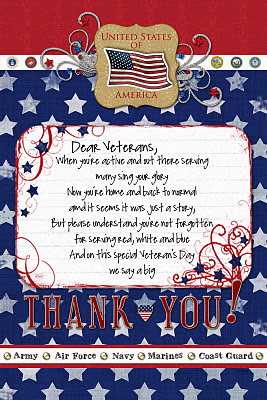 UNITED STATES
OF
AMERICA
Dear Veterans,
When you're active and out there serving
many sing your glory
Now you're home and back to normal
amd it seems it was just a story,
But please understand you're not forgotten
for serving red, white and blue
And on this special Veteran's Day
we say a big
THANK YOU!
Army Air Force Navy Marines Coast Guard